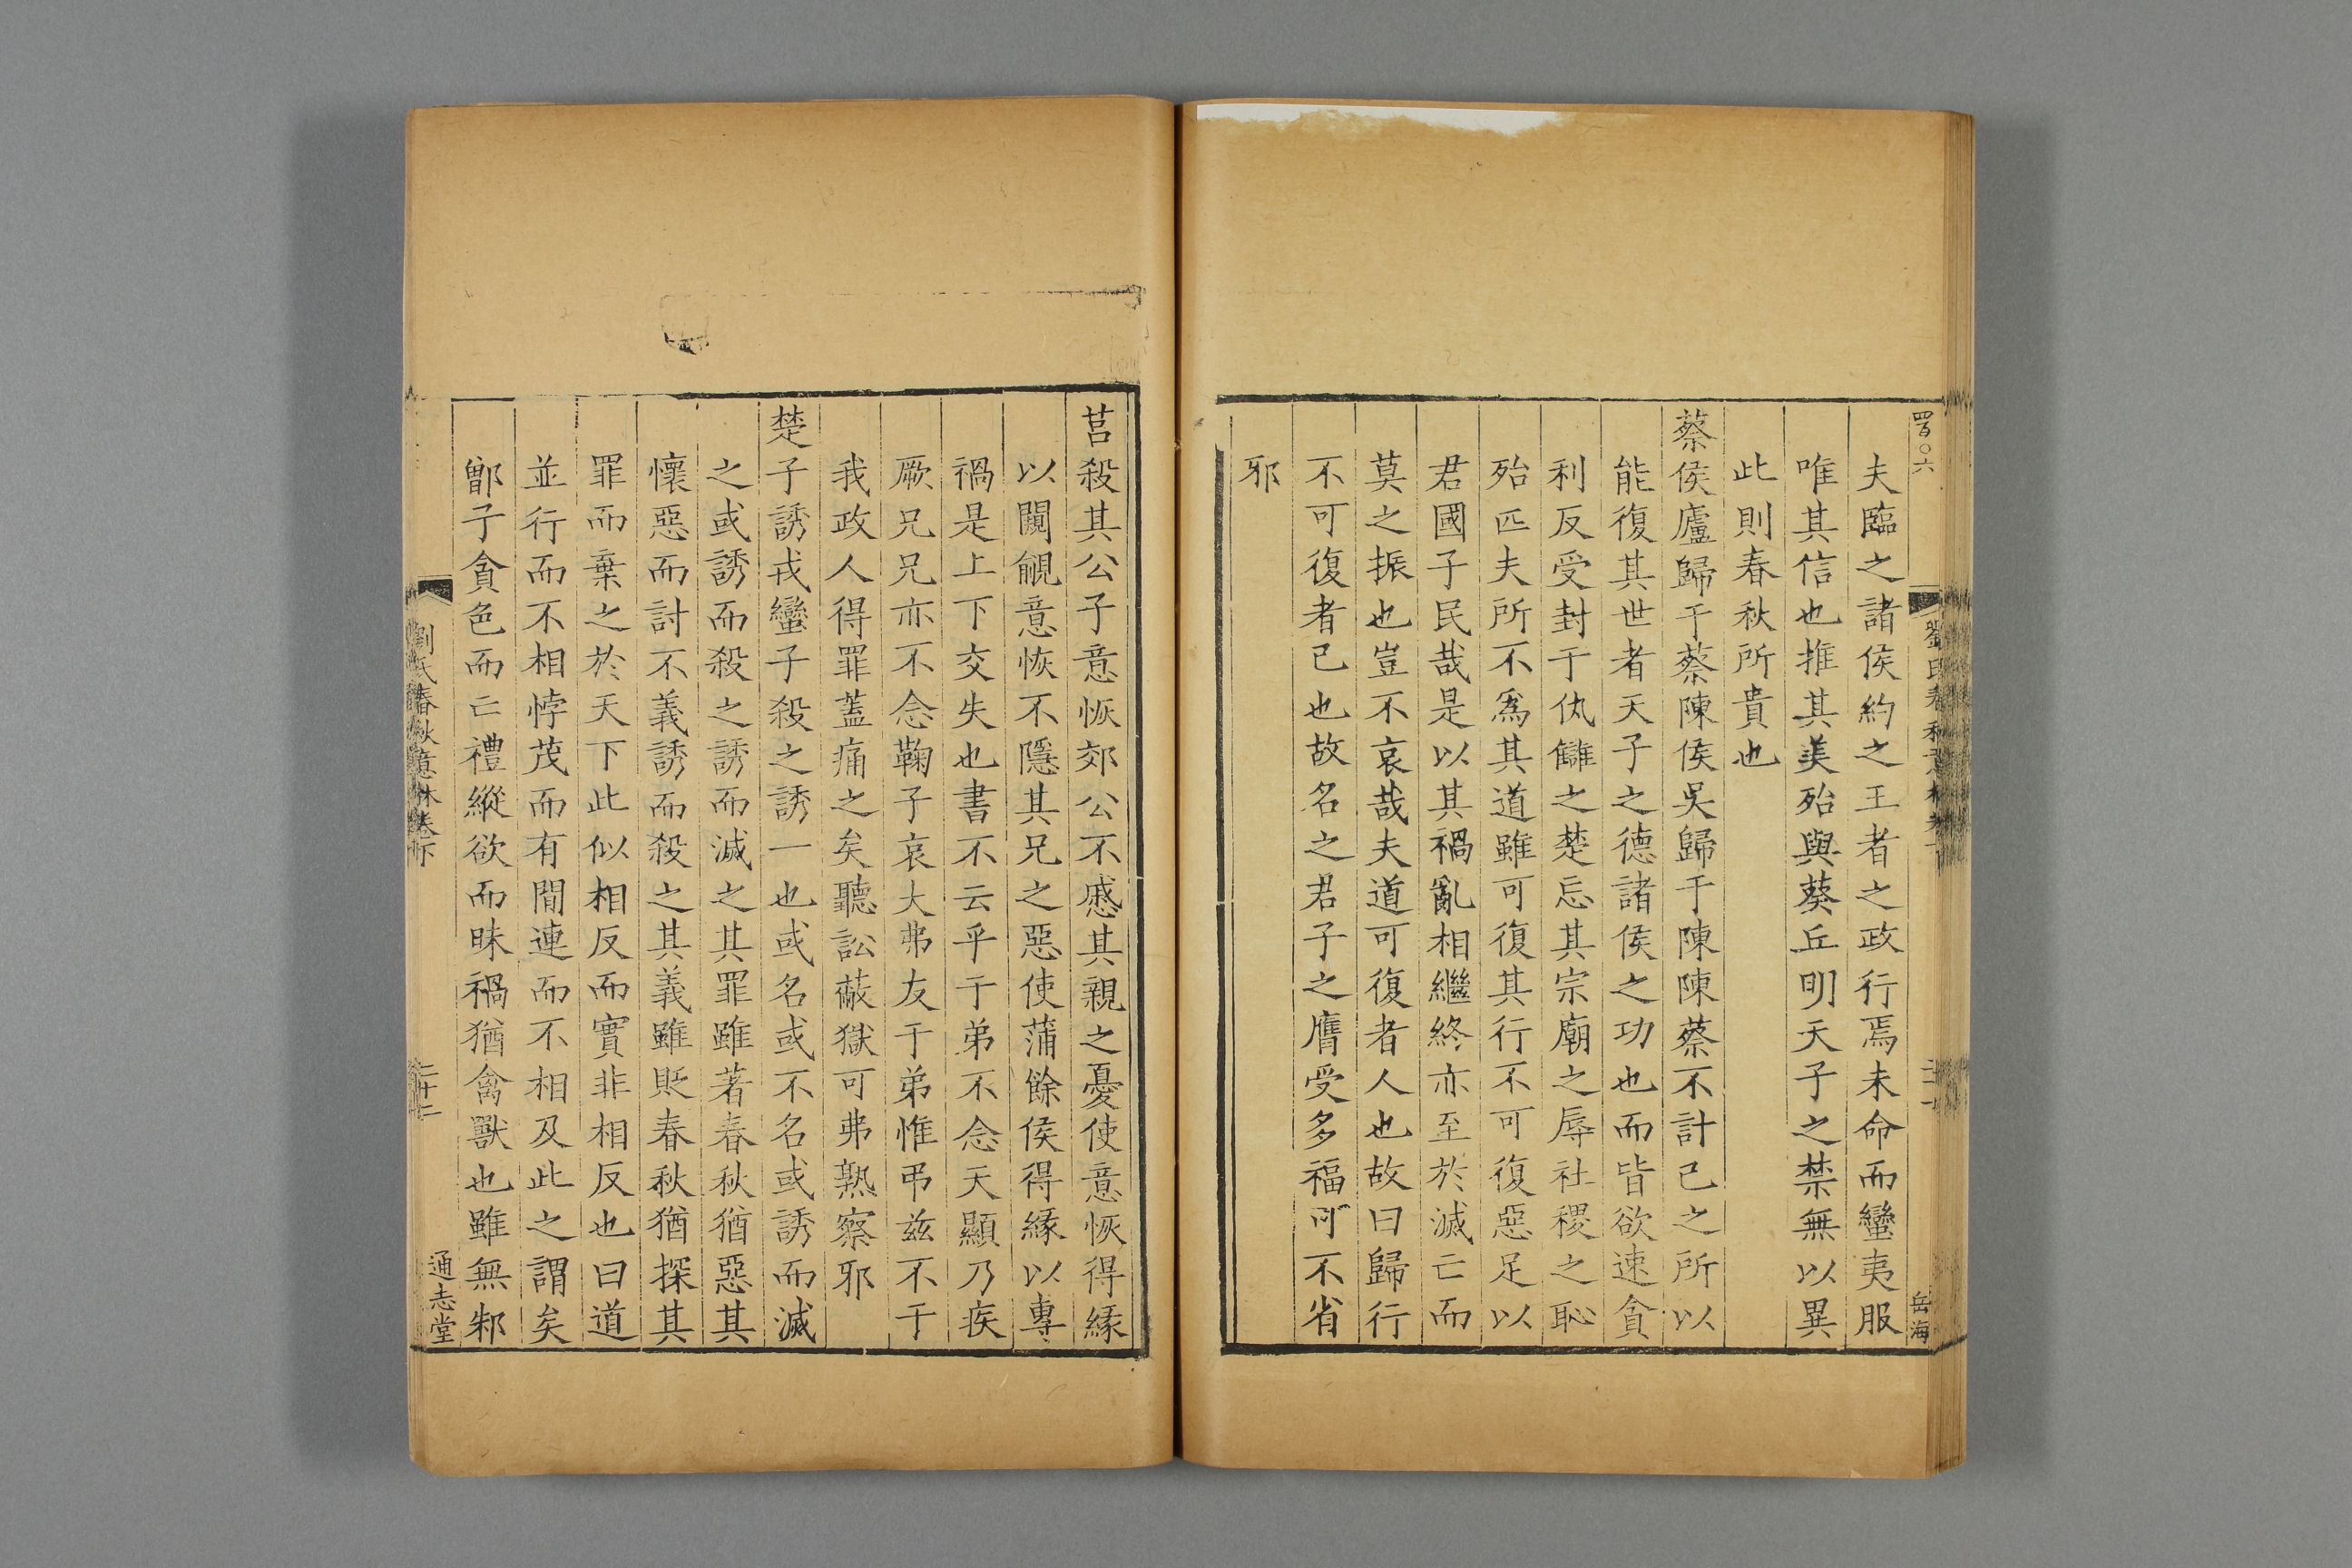 四百〇六
夫臨之諸侯約之王者之政行焉未命而蠻夷服
唯其信也推其美殆與葵丘明天子之禁無以異
此則春秋所貴也
蔡侯廬歸于蔡陳侯吳歸于陳陳蔡不計己之所以
能復其世者天子之德諸侯之功也而皆欲速貪
利反受封于仇讎之楚忘其宗廟之辱社稷之恥
殆匹夫所不為其道雖可復其行不可復惡足以
君國子民哉是以其禍亂相繼終亦至於滅亡而
莫之振也豈不哀哉夫道可復者人也故曰歸行
不可復者已也故名之君子之膺受多福可不省
邪
岳海
莒殺其公子意恢郊公不慼其親之憂使意恢得緣
以闚覦意恢不隱其兄之惡使蒲餘侯得緣以專
禍是上下交失也書不云乎于弟不念天顯乃疾
厥兄兄亦不念鞠子哀大弗友于弟惟弔茲不于
我政人得罪蓋痛之矣聽訟蔽獄可弗熟察邪
楚子誘戎蠻子殺之誘一也或名或不名或誘而滅
之或誘而殺之誘而滅之其罪雖著春秋猶惡其
懷惡而討不義誘而殺之其義雖貶春秋猶探其
罪而棄之於天下此似相反而實非相反也曰道
並行而不相悖茂而有間連而不相及此之謂矣
鄫子貪色而亡禮縱欲而昧禍猶禽獸也雖無邾
劉氏春秋意林卷下
二十二
通志堂